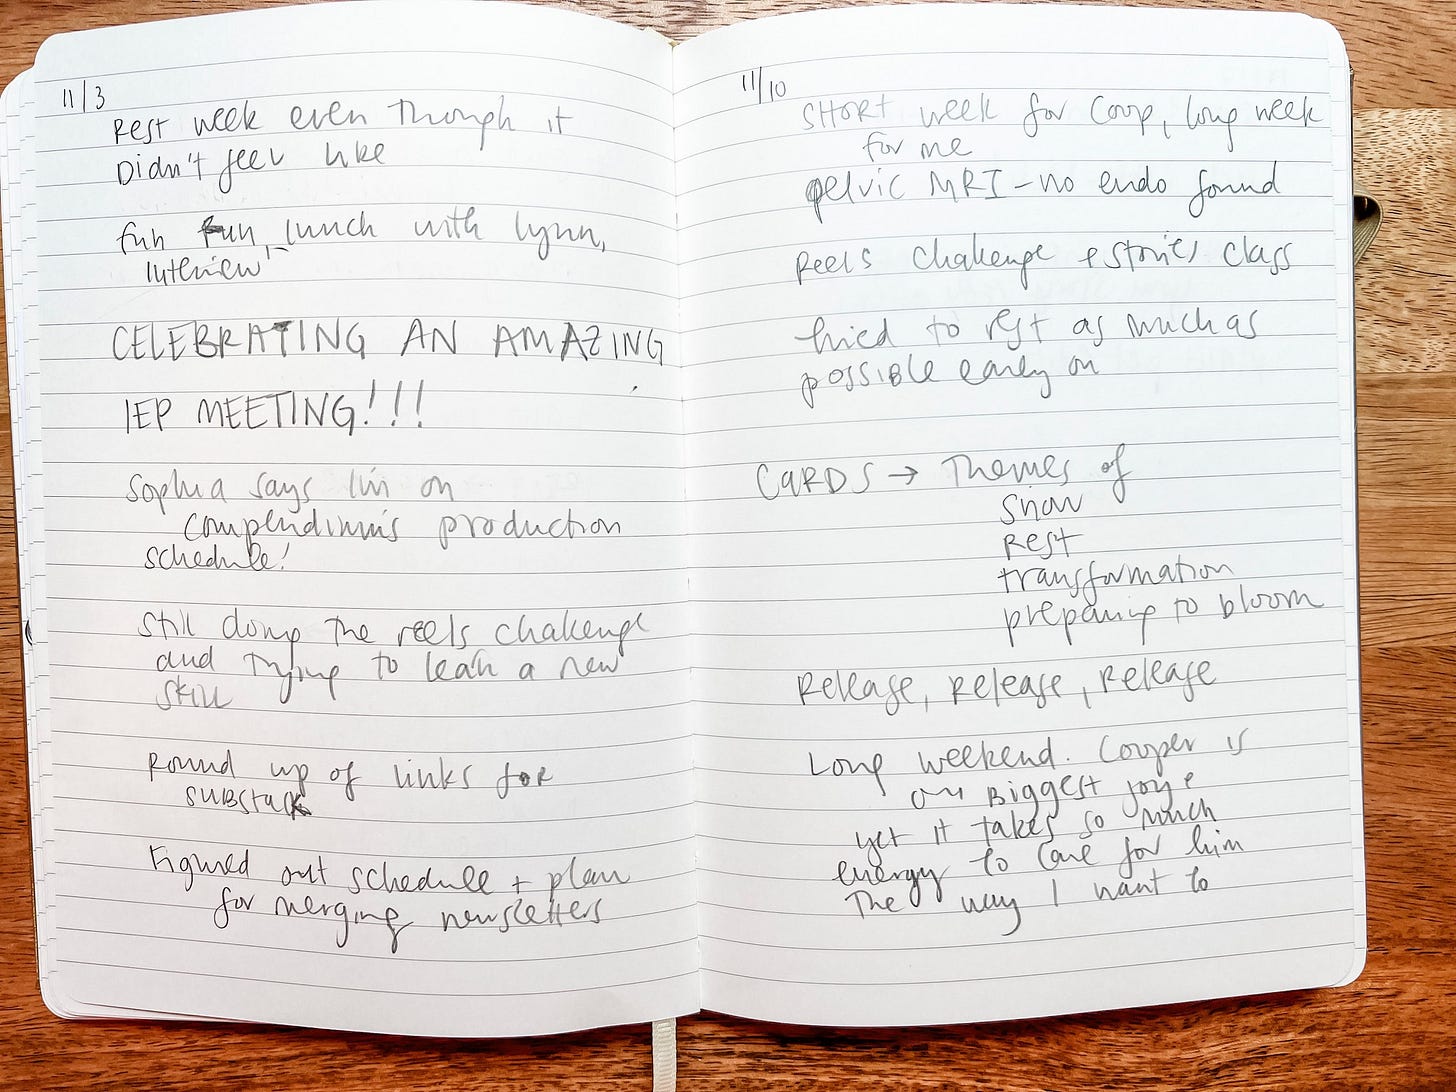 11/3
Rest week even though it
Didn't feel like
fun fun lunch with lynn,
interview
CELEBRATING AN AMAZING
IEP MEETING!!!
Sophia says I'm on
Compendium's production
schedule!
Still doing the reels challenge
and trying to learn a new
skill
Round up of links for
SUBSTACK
Figured out schedule + plan
for merging newsletters
11/10
SHORT week for Coop, long week
for me
pelvic MRI - no endo found
Reels challenge + stories class
tried to rest as much as
possible early on
CARDS → Themes of
Snow
Rest
transformation
preparing to bloom
Release, Release, Release
Long weekend. Cooper is
our Biggest joy +
yet it takes so much
energy to care for him
The way I want to